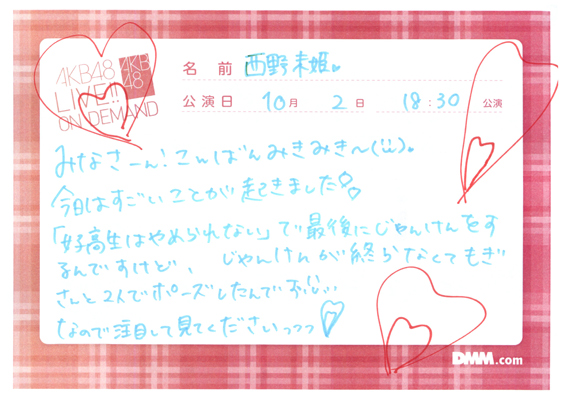 AKB48
LIVE!!
ON DEMAND
AKB
48
名 前 西野未姫。
公演日 10月 2日 18:30 公演
みなさーん!こんばんみきみき〜(ü)。
今日はすごいことが起きました
「女子高生はやめられない」で最後にじゃんけんをす
るんですけど、じゃんけんが終らなくてもぎ
さんと2人でポーズしたんで
なので注目して見てくださいっっっ
DMM.com